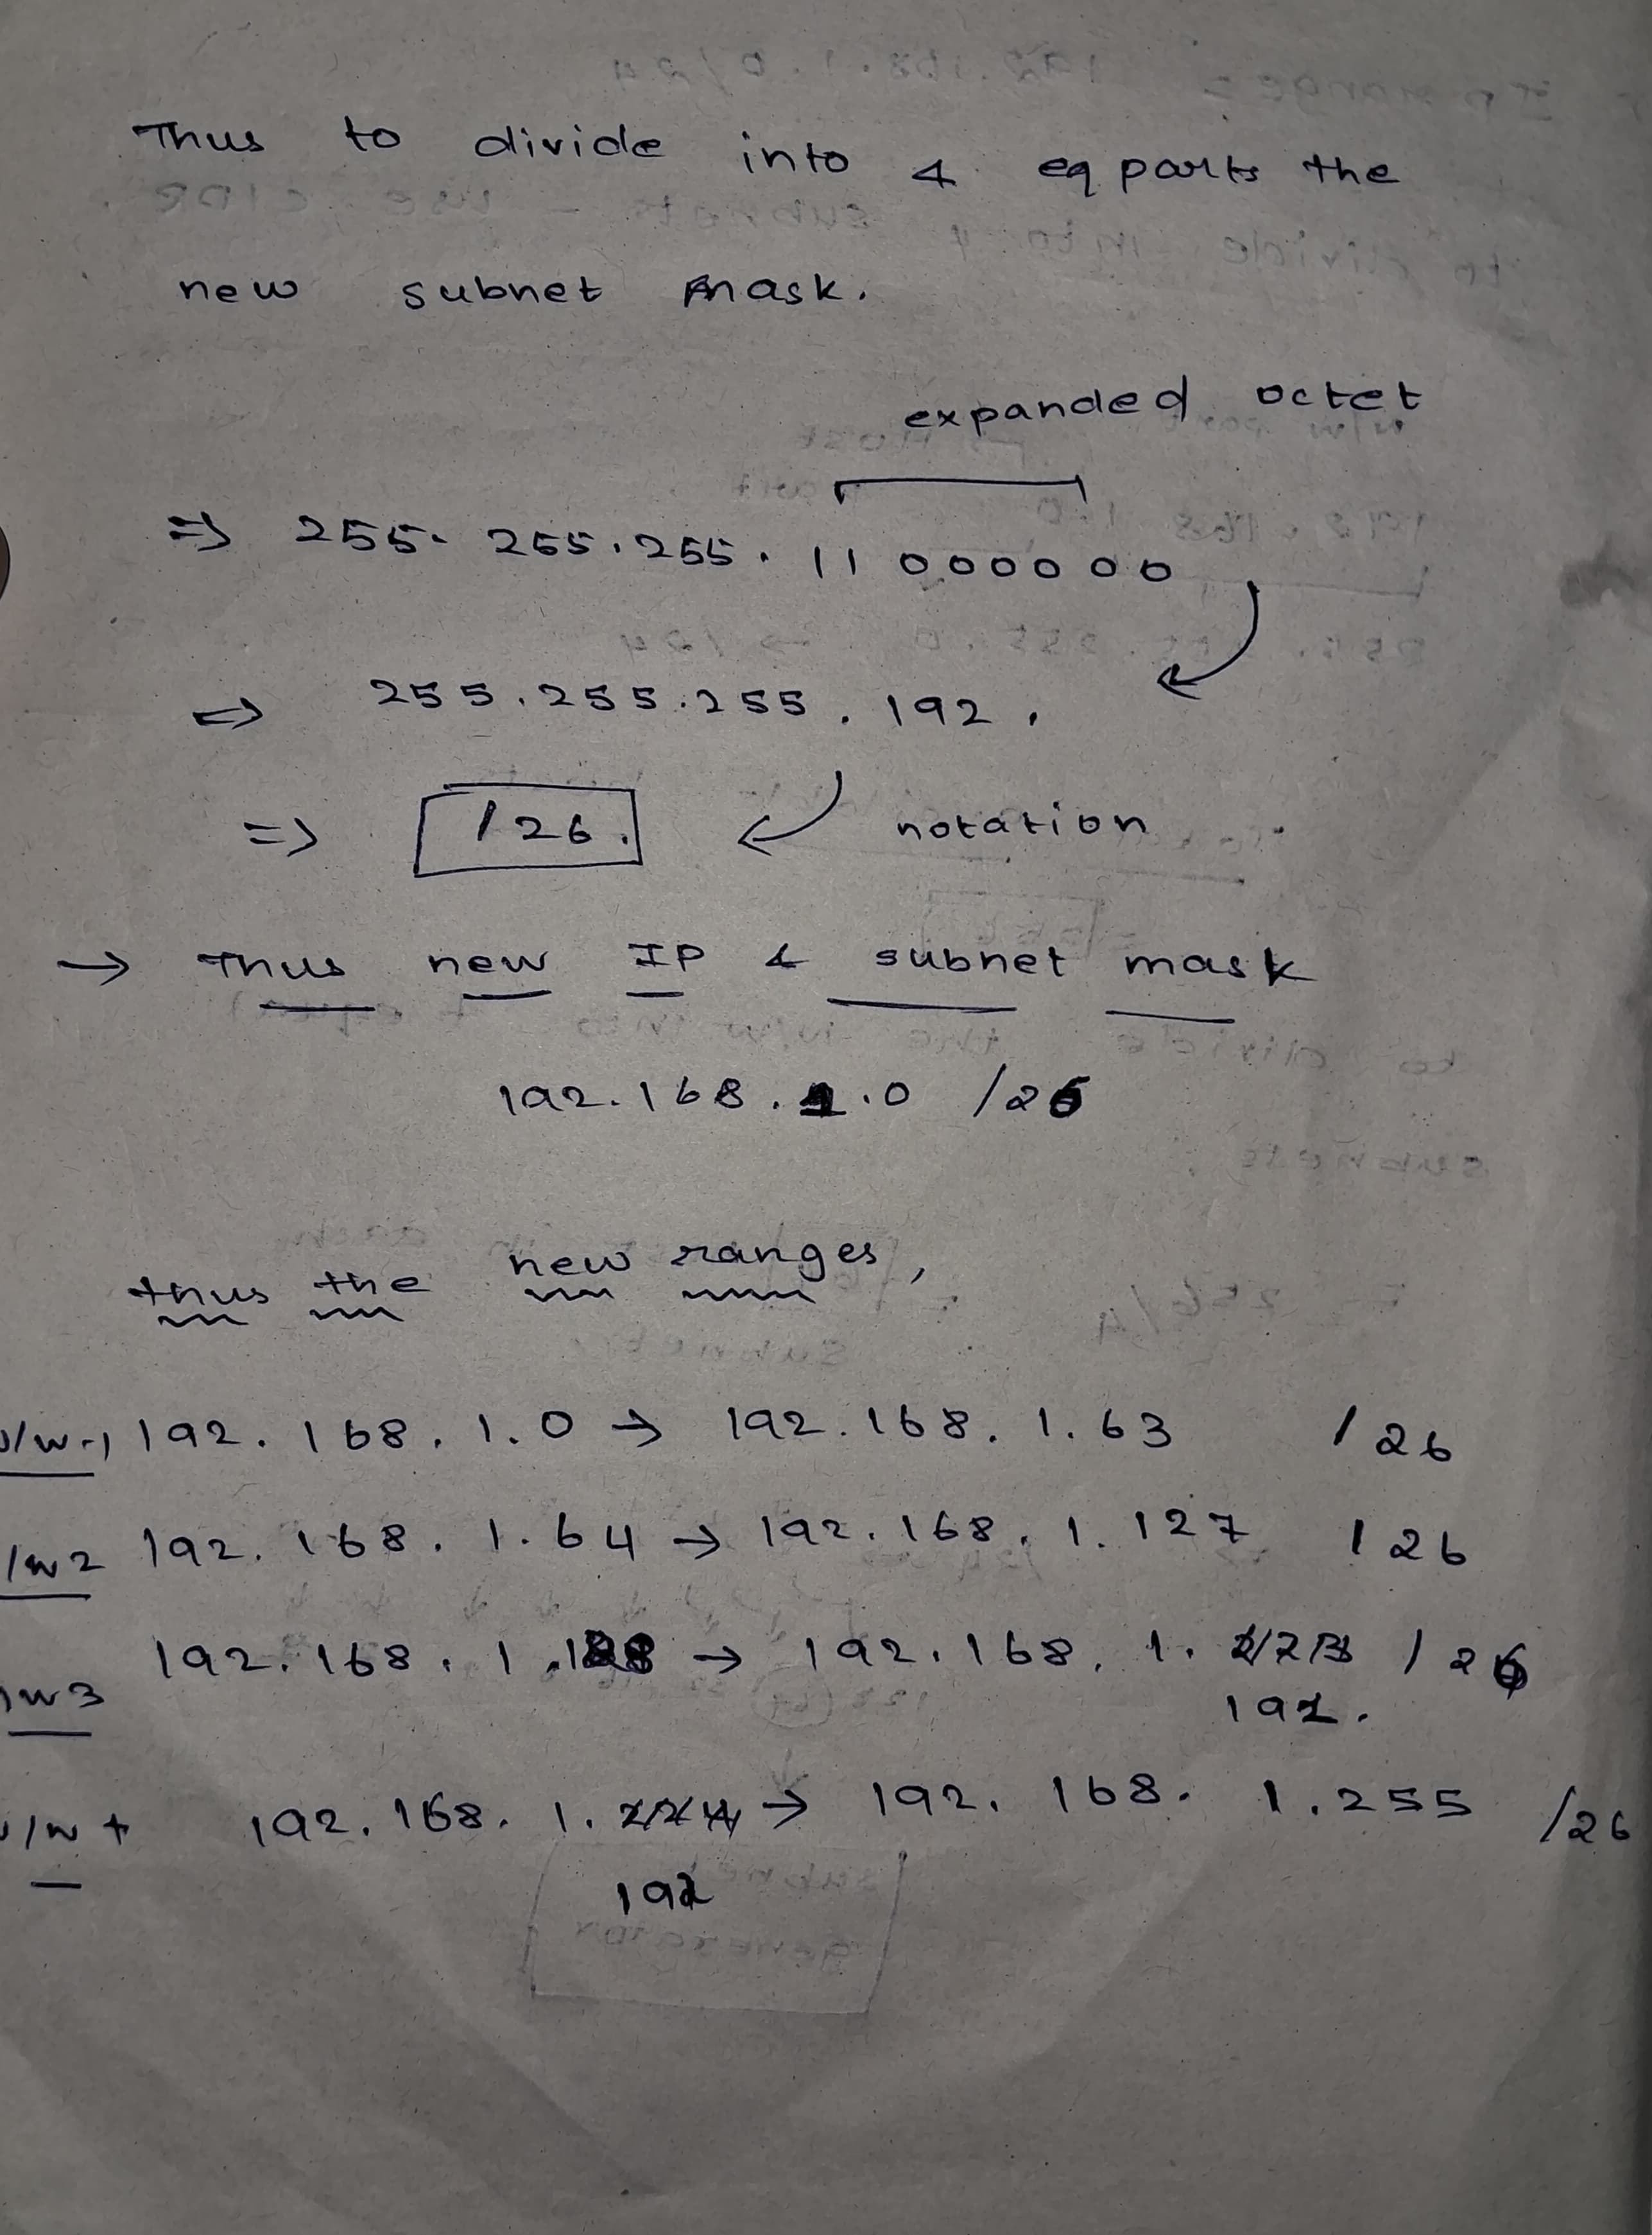 Thus to divide into 4 eq parts the
new subnet mask.
expanded octet
=> 255. 255.255. 11 000000
=> 255.255.255.192.
=> /26. notation
→ Thus new IP & subnet mask
192.168.1.0 /26
thus the new ranges,
/w-1 192.168.1.0 → 192.168.1.63 /26
/w2 192.168.1.64 → 192.168.1.127 /26
w3 192.168.1.128 → 192.168.1. /26
191.
/w 4 192.168.1. → 192.168.1.255 /26
192